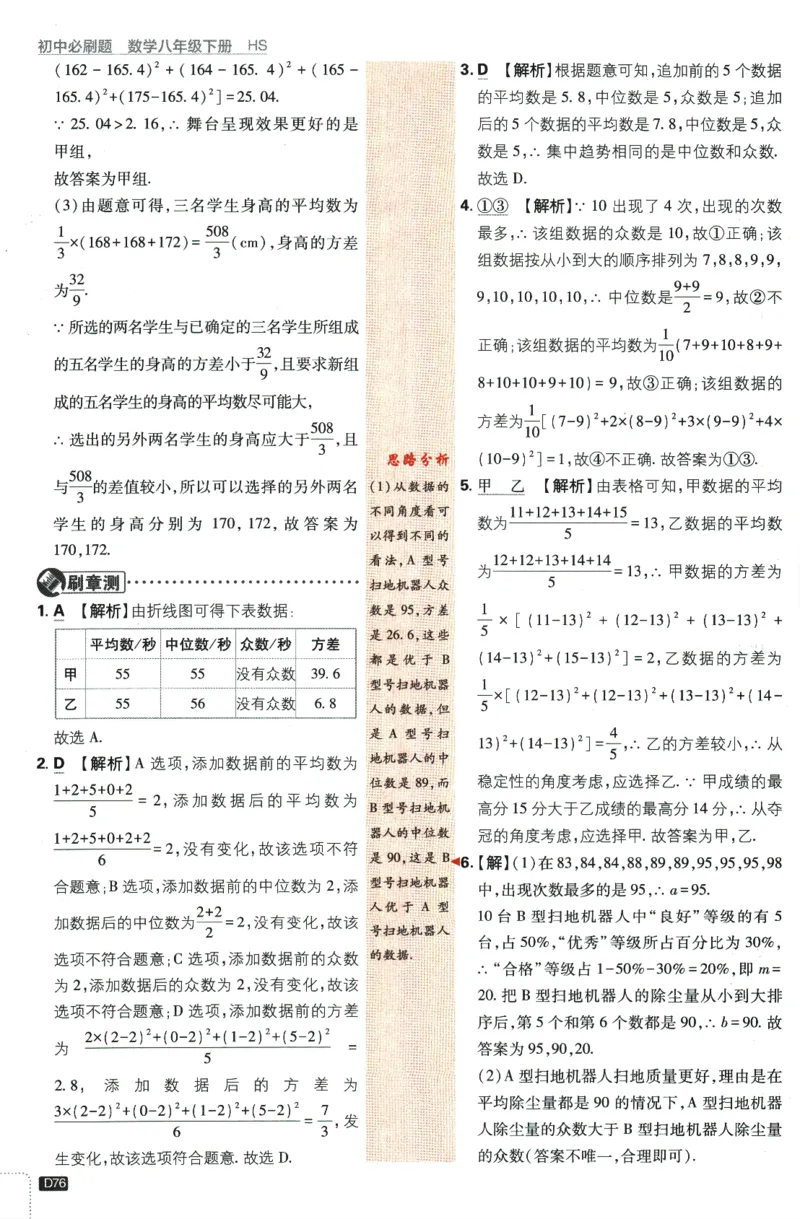 初中必刷题 数学八年级下册 HS
(162-165.4)²+(164-165.4)²+(165-
165.4)²+(175-165.4)²]=25.04.
∵ 25.04>2.16,∴ 舞台呈现效果更好的是
甲组,
故答案为甲组.
(3)由题意可得,三名学生身高的平均数为
1/3×(168+168+172)=508/3(cm),身高的方差
为32/9.
∵所选的两名学生与已确定的三名学生所组成
的五名学生的身高的方差小于32/9,且要求新组
成的五名学生的身高的平均数尽可能大,
∴选出的另外两名学生的身高应大于508/3,且
与508/3的差值较小,所以可以选择的另外两名
学生的身高分别为 170, 172, 故答案为
170,172.
刷章测
1. A 【解析】由折线图可得下表数据:
平均数/秒 中位数/秒 众数/秒 方差
甲 55 55 没有众数 39.6
乙 55 56 没有众数 6.8
故选 A.
2. D 【解析】A 选项,添加数据前的平均数为
(1+2+5+0+2)/5 = 2,添加数据后的平均数为
(1+2+5+0+2+2)/6=2,没有变化,故该选项不符
合题意;B 选项,添加数据前的中位数为 2,添
加数据后的中位数为(2+2)/2=2,没有变化,故该
选项不符合题意;C 选项,添加数据前的众数
为 2,添加数据后的众数为 2,没有变化,故该
选项不符合题意;D 选项,添加数据前的方差
为 [2×(2-2)²+(0-2)²+(1-2)²+(5-2)²]/5 =
2.8, 添加数据后的方差为
[3×(2-2)²+(0-2)²+(1-2)²+(5-2)²]/6=7/3,发
生变化,故该选项符合题意.故选 D.
D76
思路分析
(1)从数据的
不同角度看可
以得到不同的
看法,A 型号
扫地机器人众
数是 95,方差
是 26.6,这些
都是优于 B
型号扫地机器
人的数据,但
是 A 型号扫
地机器人的中
位数是 89,而
B 型号扫地机
器人的中位数
是 90,这是 B
型号扫地机器
人优于 A 型
号扫地机器人
的数据.
3. D 【解析】根据题意可知,追加前的 5 个数据
的平均数是 5.8,中位数是 5,众数是 5;追加
后的 5 个数据的平均数是 7.8,中位数是 5,众
数是 5,∴ 集中趋势相同的是中位数和众数.
故选 D.
4. ①③ 【解析】∵ 10 出现了 4 次,出现的次数
最多,∴ 该组数据的众数是 10,故①正确;该
组数据按从小到大的顺序排列为 7,8,8,9,9,
9,10,10,10,10,∴ 中位数是(9+9)/2=9,故②不
正确;该组数据的平均数为1/10(7+9+10+8+9+
8+10+10+9+10)= 9,故③正确;该组数据的
方差为1/10[(7-9)²+2×(8-9)²+3×(9-9)²+4×
(10-9)²]=1,故④不正确.故答案为①③.
5. 甲 乙 【解析】由表格可知,甲数据的平均
数为(11+12+13+14+15)/5=13,乙数据的平均数
为(12+12+13+14+14)/5=13,∴ 甲数据的方差为
1/5×[(11-13)²+(12-13)²+(13-13)²+
(14-13)²+(15-13)²]=2,乙数据的方差为
1/5×[(12-13)²+(12-13)²+(13-13)²+(14-
13)²+(14-13)²]=4/5,∴ 乙的方差较小,∴ 从
稳定性的角度考虑,应选择乙.∵ 甲成绩的最
高分 15 分大于乙成绩的最高分 14 分,∴ 从夺
冠的角度考虑,应选择甲.故答案为甲,乙.
6.【解】(1)在 83,84,84,88,89,89,95,95,95,98
中,出现次数最多的是 95,∴ a=95.
10 台 B 型扫地机器人中“良好”等级的有 5
台,占 50%,“优秀”等级所占百分比为 30%,
∴“合格”等级占 1-50%-30%=20%,即 m=
20.把 B 型扫地机器人的除尘量从小到大排
序后,第 5 个和第 6 个数都是 90,∴ b=90.故
答案为 95,90,20.
(2)A 型扫地机器人扫地质量更好,理由是在
平均除尘量都是 90 的情况下,A 型扫地机器
人除尘量的众数大于 B 型扫地机器人除尘量
的众数(答案不唯一,合理即可).